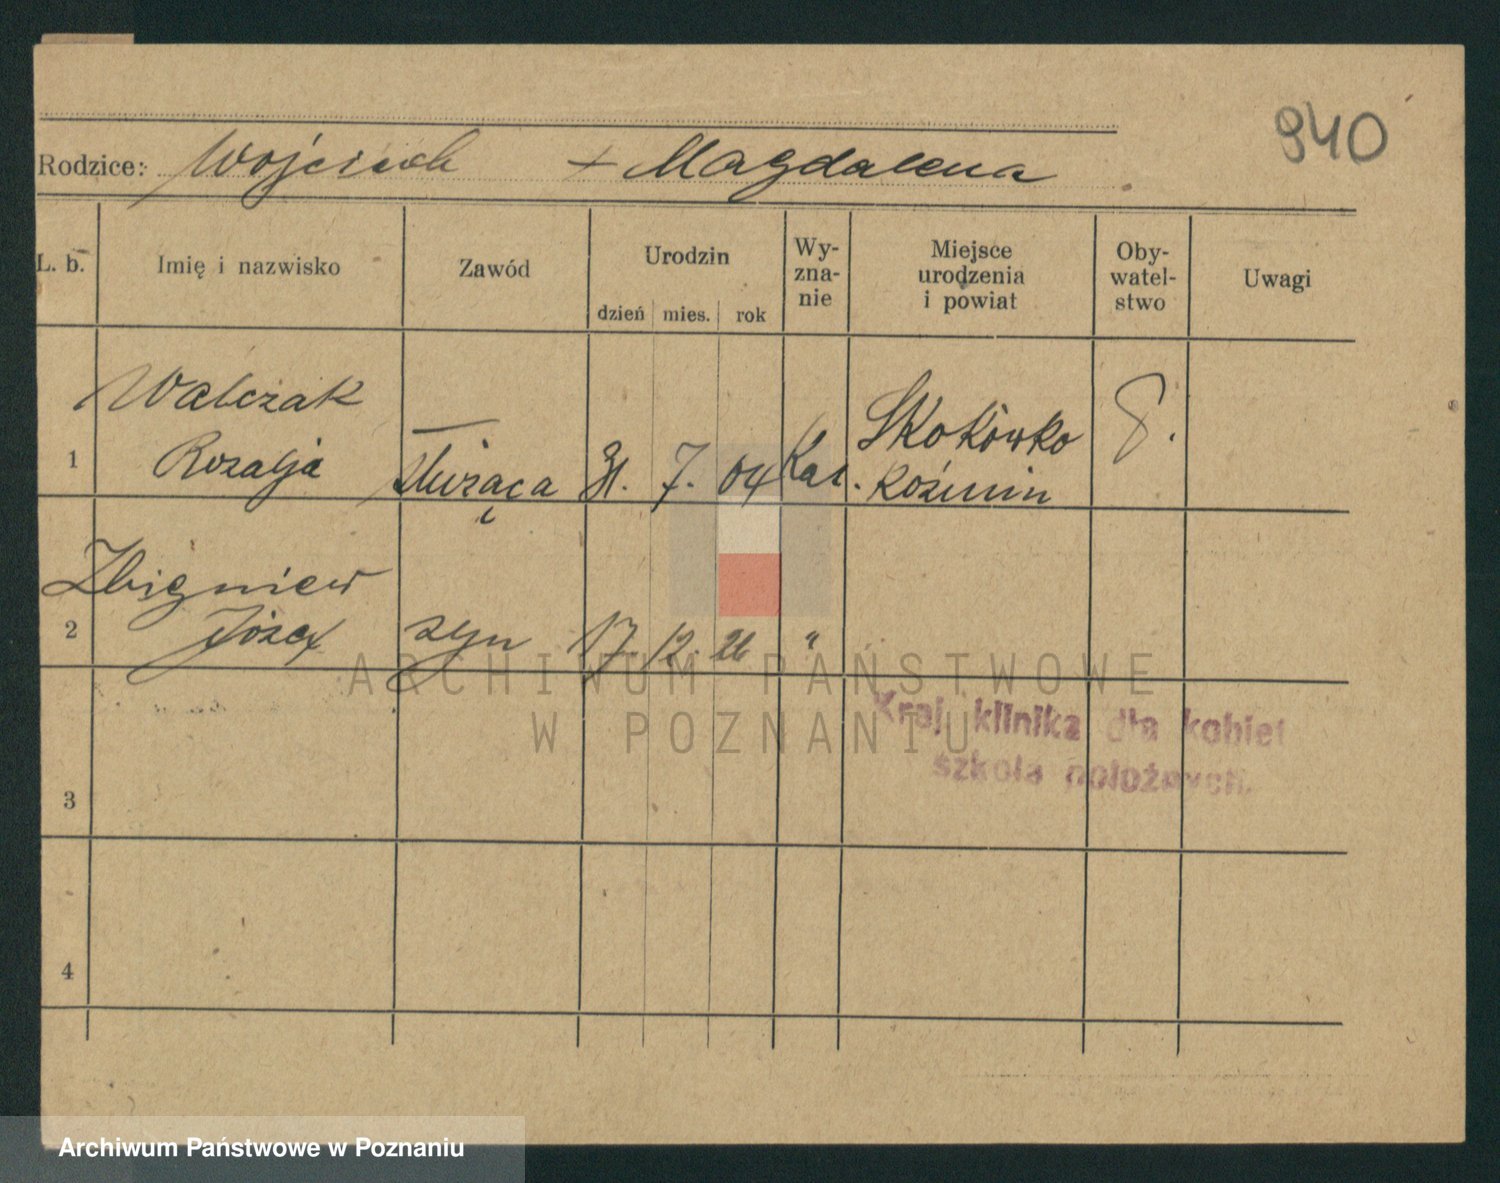 940
Rodzice: Wojciech + Magdalena
L. b. Imię i nazwisko Zawód Urodzin dzień mies. rok Wy-zna-nie Miejsce urodzenia i powiat Oby-watel-stwo Uwagi
Walczak Skokówko
1 Rozalja służąca 31. 7. 04 Kat. Koźmin
Zbigniew
2 Józef syn 17. 12. 26 "
ARCHIWUM PAŃSTWOWE
W POZNANIU
Kraj. klinika dla kobiet
szkoła położnych.
3
4
Archiwum Państwowe w Poznaniu